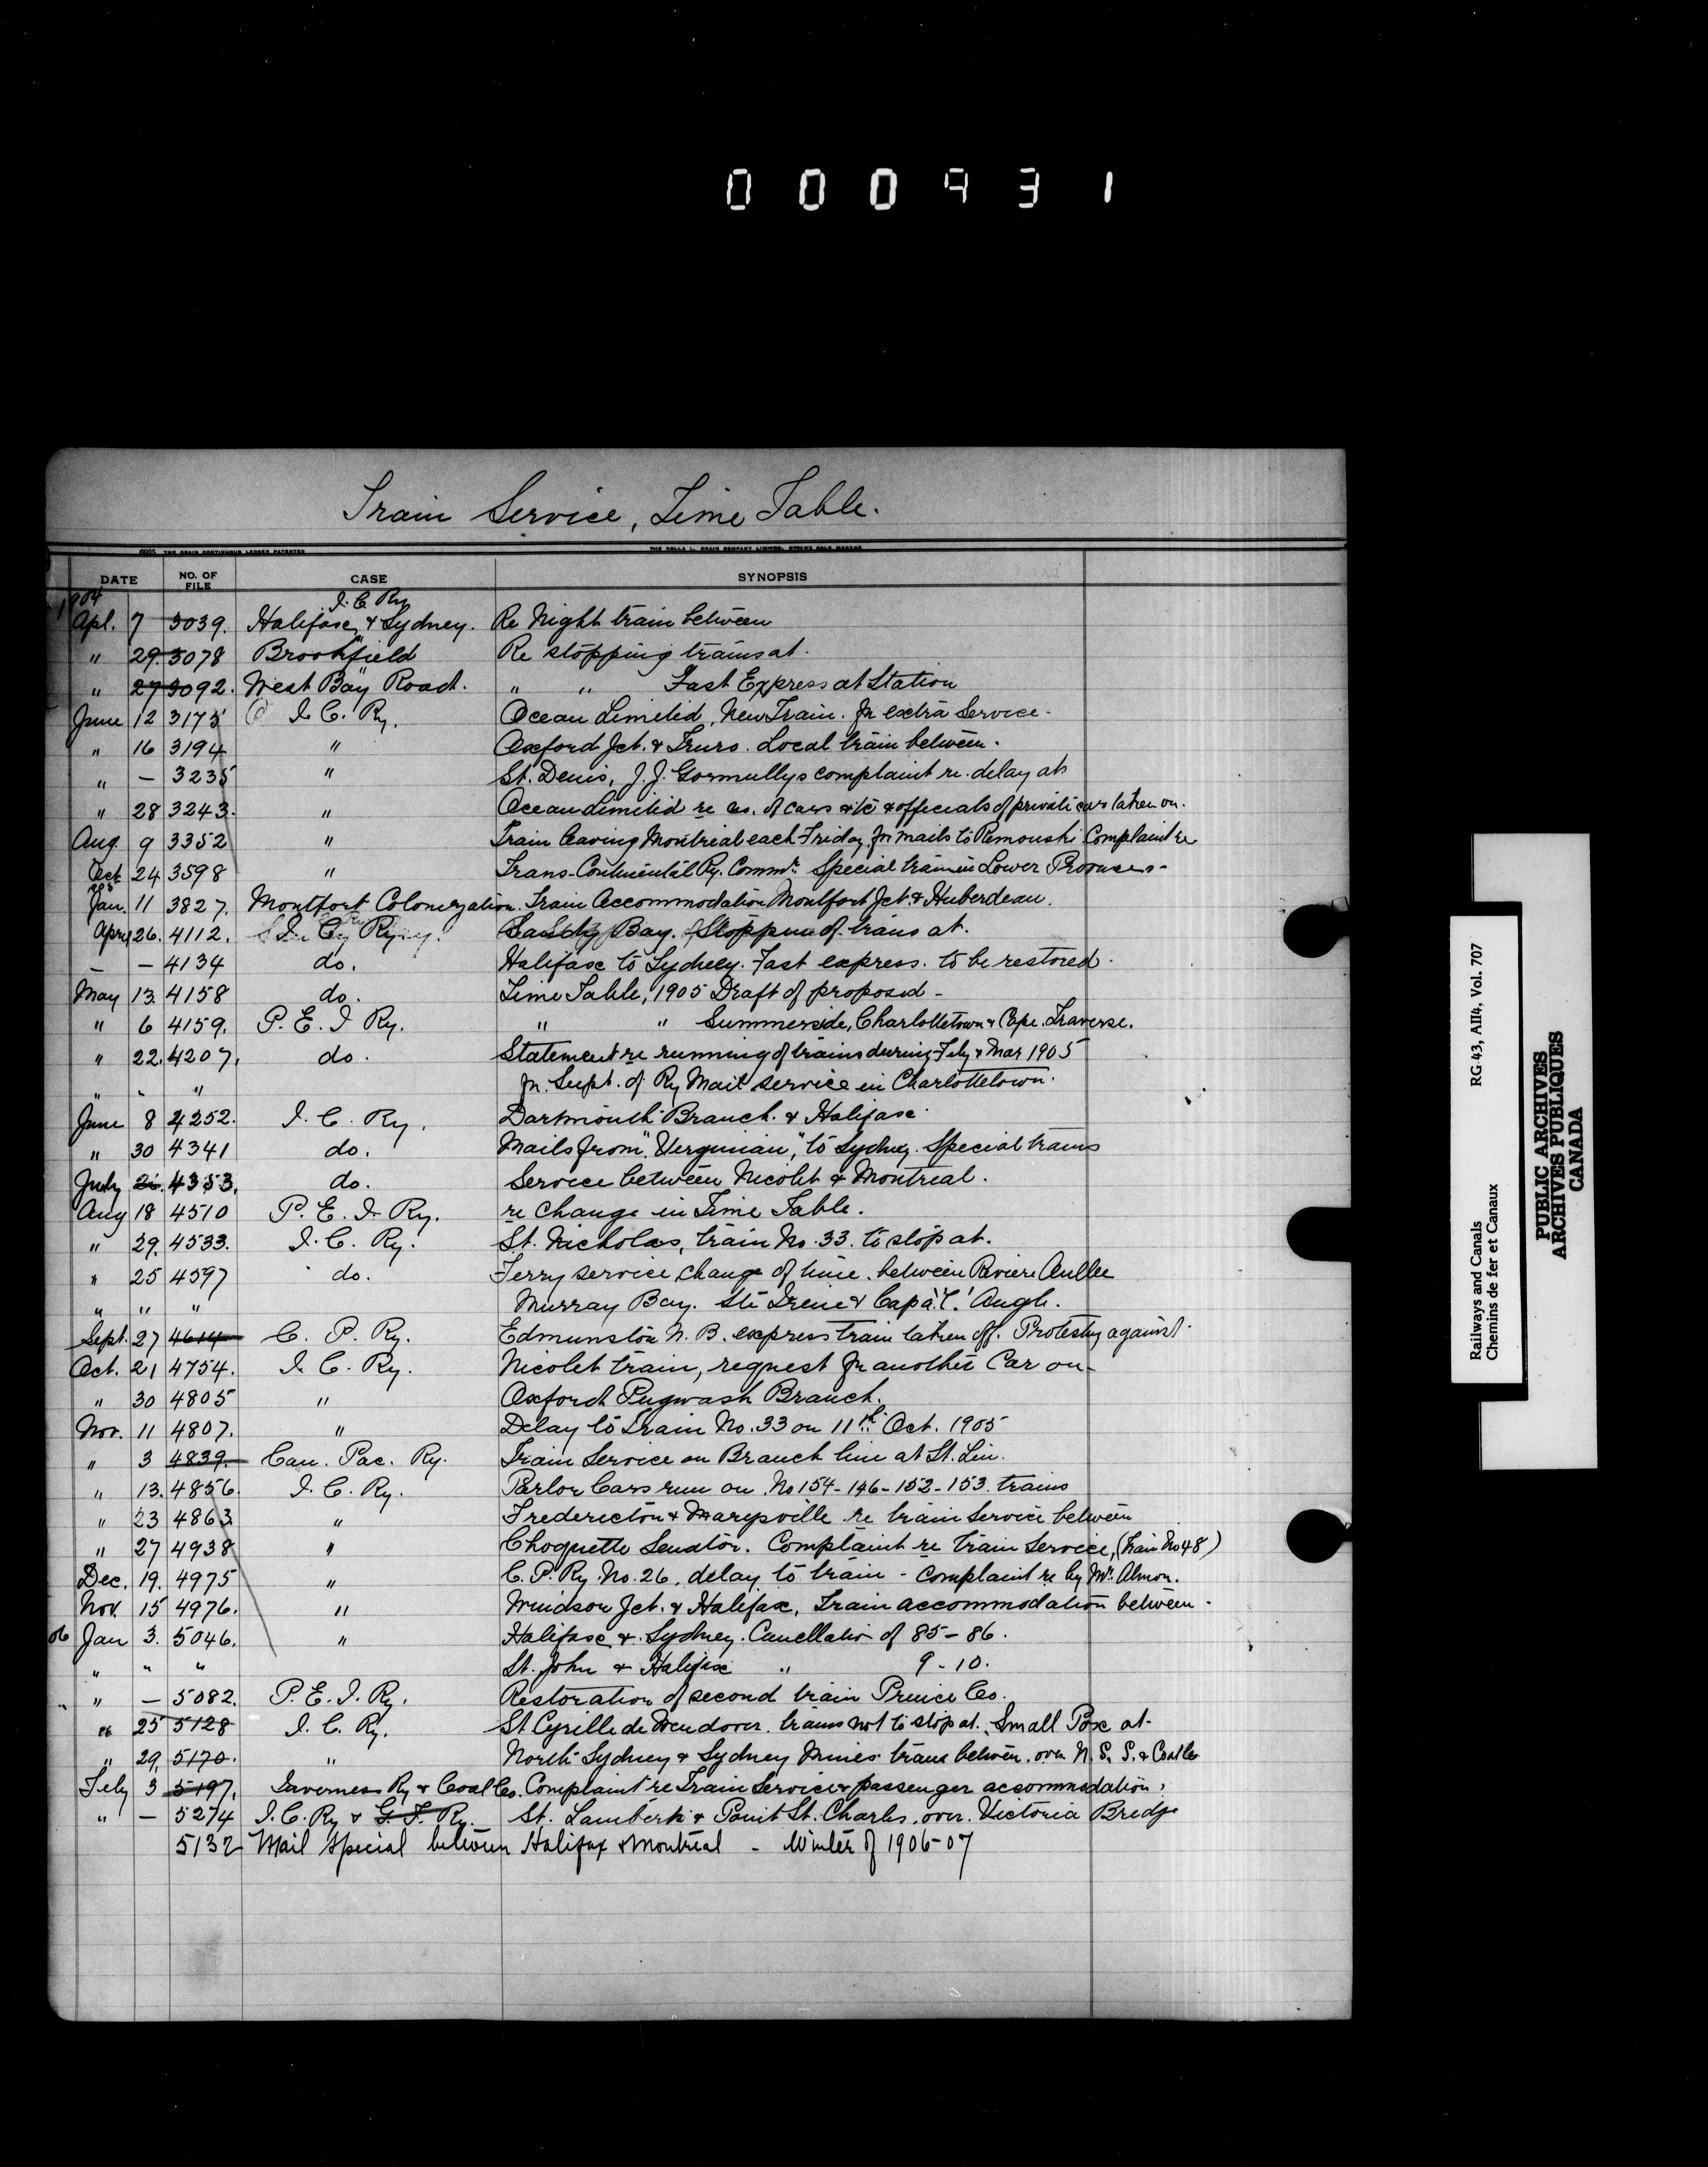 000931
Train Service, Time Table.
THE CRAIN CONTINUOUS LEDGER PATENTED THE ROLLA L. CRAIN COMPANY LIMITED, OTTAWA SOLE MAKERS
DATE NO. OF FILE CASE SYNOPSIS
1904 I. C. Ry
Apl. 7 3039. Halifax & Sydney. Re Night train between
" 29. 3078 Brookfield Re stopping trains at.
" 27 3092. West Bay Road. " " Fast Express at Station
June 12 3175 I. C. Ry. Ocean Limited, New Train. for extra Service.
" 16 3194 " Oxford Jct. & Truro. Local train between.
" — 3235 " St. Denis, J. J. Gormullys complaint re. delay at
" 28 3243. " Ocean Limited re no. of cars &tc & officials of private cars taken on.
Aug. 9 3352 " Train leaving Montreal each Friday for mails to Rimouski Complaint re
Oct 24 3598 " Trans-Continental Ry. Commrs. Special train in Lower Provinces.
Jan. 11 3827. Montfort Colonization. Train Accommodation Montfort Jct. & Huberdeau.
April 26. 4112. I. C. Ry. Sandy Bay. Stopping of trains at.
— — 4134 do. Halifax to Sydney. Fast express. to be restored.
May 13. 4158 do. Time Table, 1905 Draft of proposed -
" 6 4159. P. E. I Ry. " " Summerside, Charlottetown & Cape Traverse.
" 22. 4207. do. Statement re running of trains during Feby & Mar 1905
" " " fr. Supt. of Ry Mail service in Charlottetown.
June 8 4252. I. C. Ry. Dartmouth Branch. & Halifax.
" 30 4341 do. Mails from "Virginian," to Sydney. Special trains
July 26. 4353. do. Service between Nicolet & Montreal.
Aug 18 4510 P. E. I. Ry. re Change in Time Table.
" 29. 4533. I. C. Ry. St. Nicholas, train No. 33. to stop at.
" 25 4597 do. Ferry service change of time. between Riviere Ouelle
" " " Murray Bay. Ste Irene & Cap à "l" Augle.
Sept. 27 4614 C. P. Ry. Edmunston N. B. express train taken off. Protesting against.
Oct. 21 4754. I. C. Ry. Nicolet train, request for another Car on-
" 30 4805 " Oxford Pugwash Branch.
Nov. 11 4807. " Delay to Train No. 33 on 11th Oct. 1905
" 3 4839. Can. Pac. Ry. Train Service on Branch line at St. Lin.
" 13. 4856. I. C. Ry. Parlor Cars run on No 154-146-152-153. trains
" 23 4863 " Fredericton & Marysville re train service between
" 27 4938 " Choquette Senator. Complaint re Train Service, (train No 48)
Dec. 19. 4975 " C. P. Ry. No. 26, delay to train - Complaint re by Mr. Almon.
Nov. 15 4976. " Windson Jct. & Halifax, Train accommodation between.
06 Jan 3. 5046. " Halifax & Sydney. Cancellatio of 85-86.
" " " St. John & Halifax " 9-10.
" — 5082. P. E. I. Ry. Restoration of second train Prince Co.
" 25 5128 I. C. Ry. St Cyrille de Wendover. trains not to stop at. Small Pox at-
" 29. 5170. " North Sydney & Sydney Mines trains between. over N. S. S. & Coal Co
Feby 3 5197. Inverness Ry & Coal Co. Complaint re Train Service & passenger accommodation.
" — 5274 I. C. Ry & G. T. Ry. St. Lambert & Point St. Charles. over. Victoria Bridge
5132 Mail Special between Halifax & Montreal - Winter of 1906-07
Railways and Canals RG 43, AII4, Vol. 707
Chemins de fer et Canaux
PUBLIC ARCHIVES
ARCHIVES PUBLIQUES
CANADA